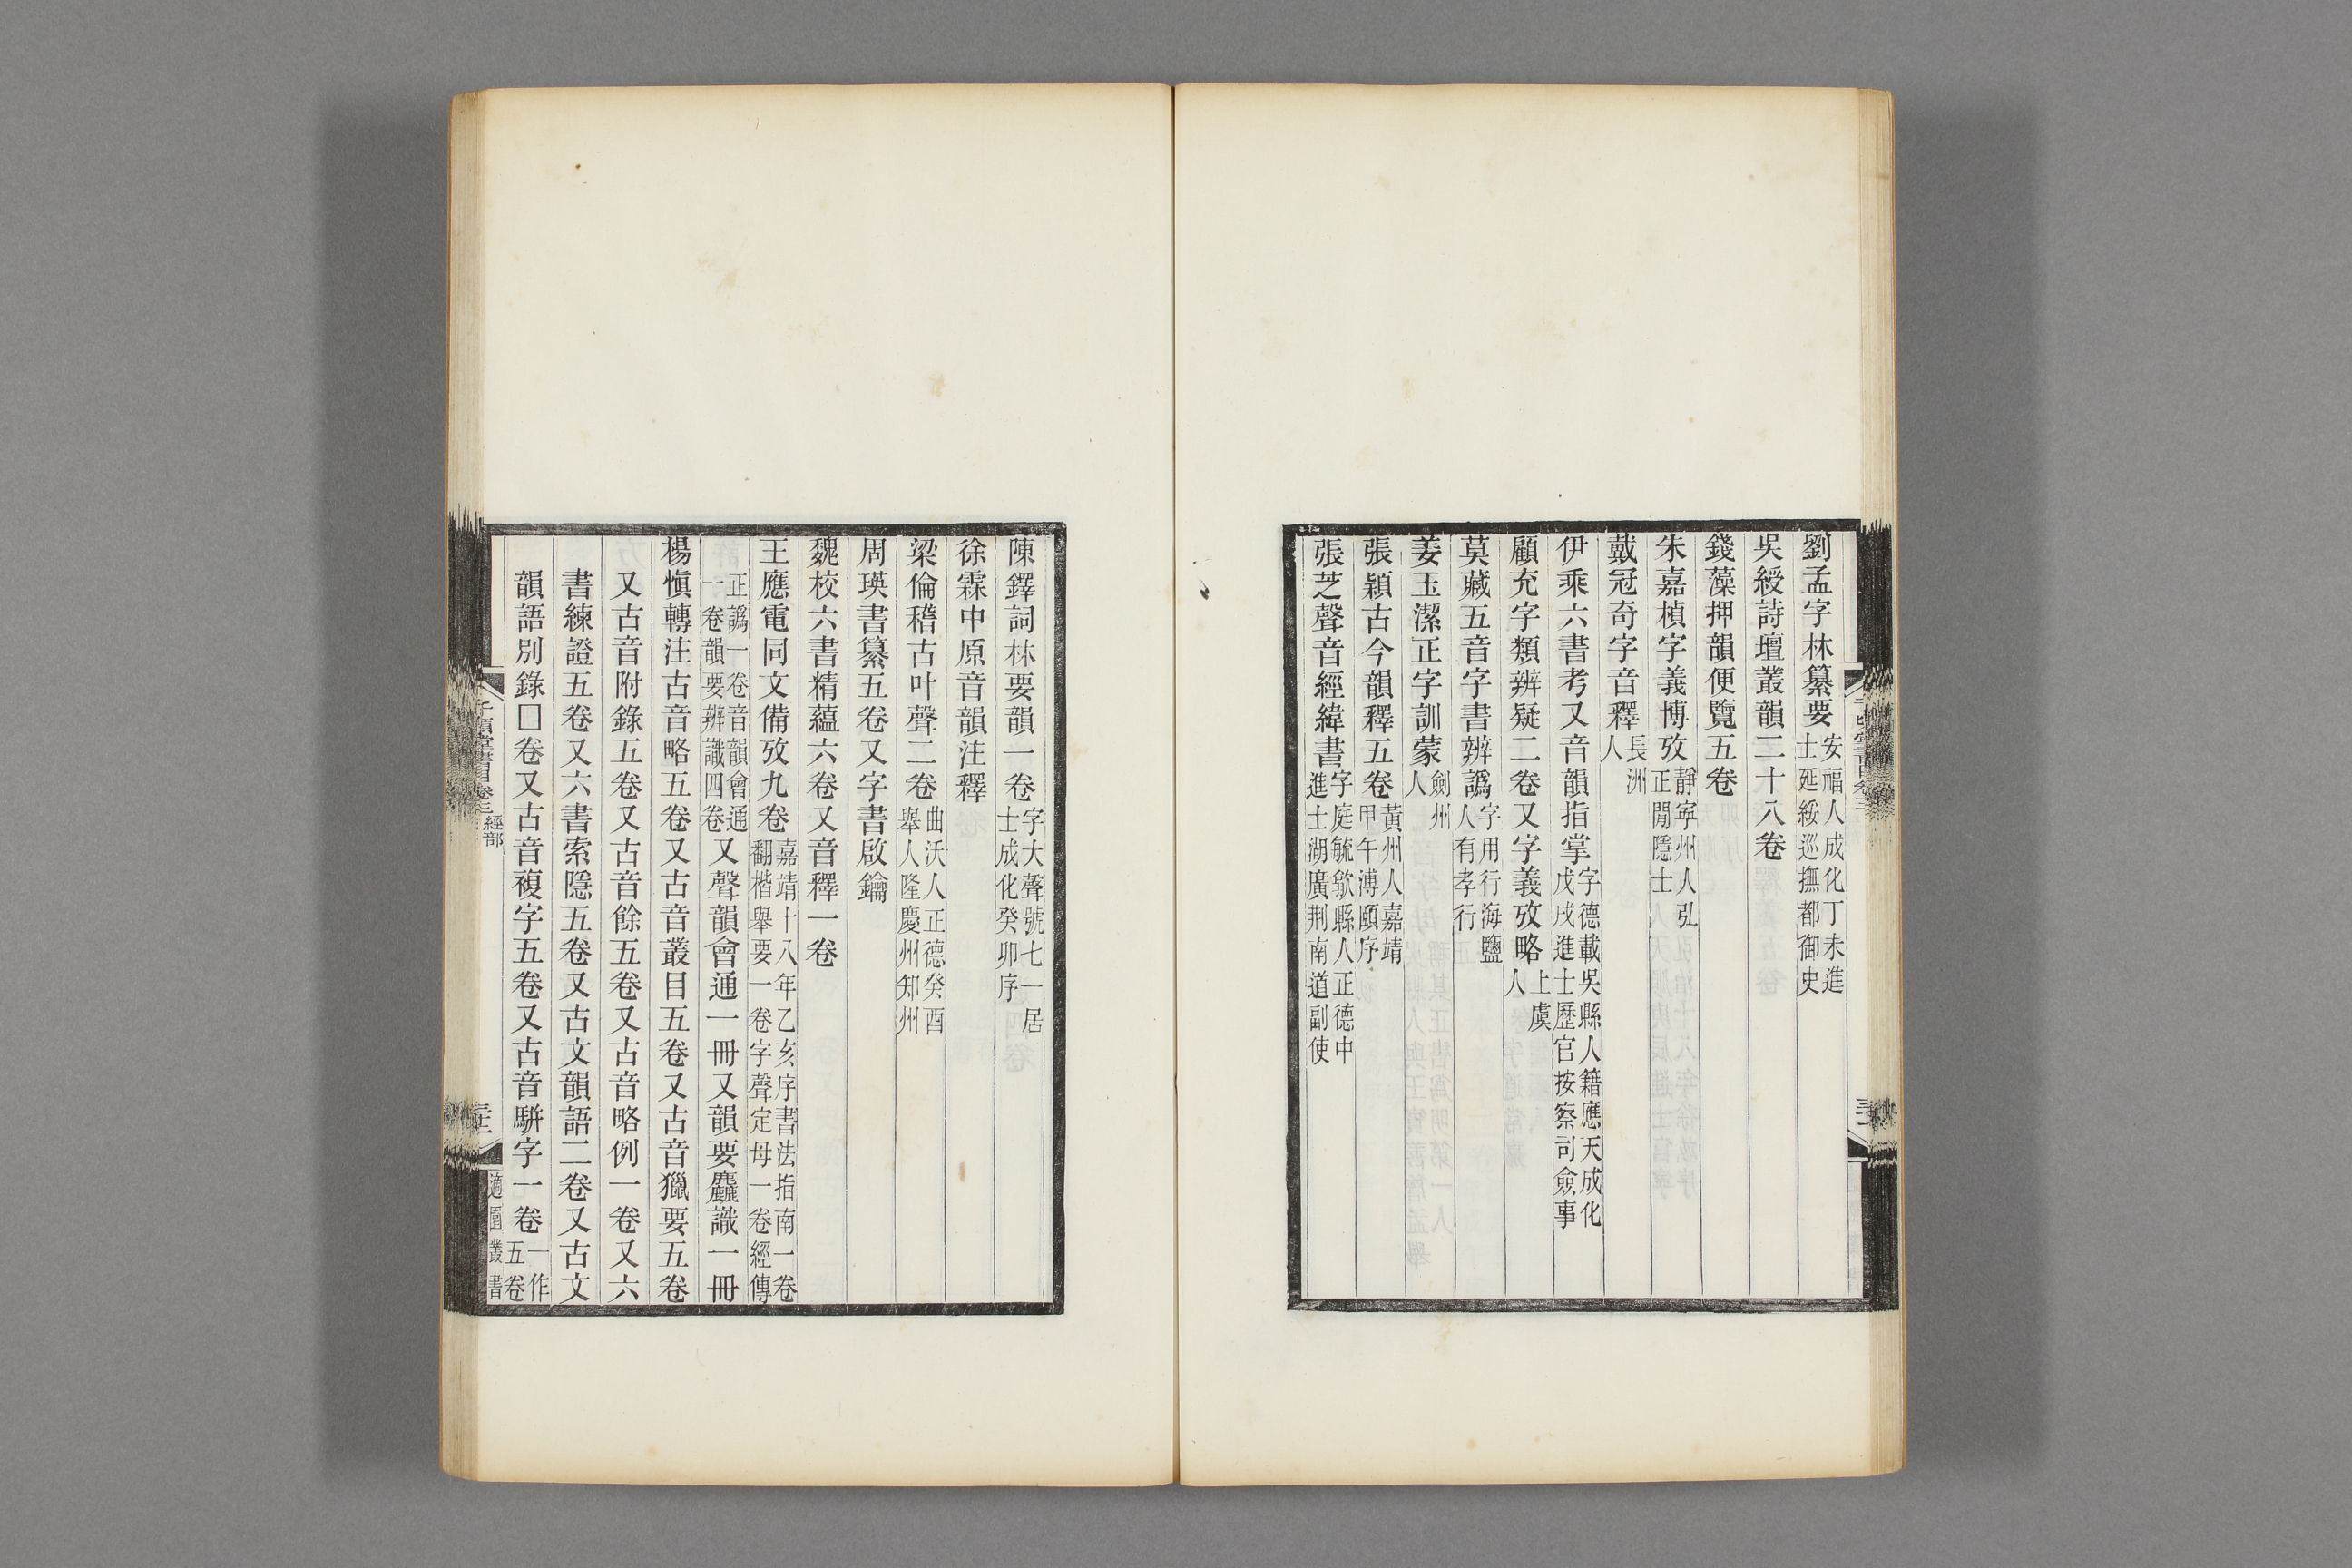 劉孟字林纂要安福人成化丁未進士延綏巡撫都御史
吳綬詩壇叢韻二十八卷
錢藻押韻便覽五卷
朱嘉楨字義博攷靜寧州人弘正閒隱士
戴冠奇字音釋長洲人
伊乘六書考又音韻指掌字德載吳縣人籍應天成化戊戌進士歷官按察司僉事
顧充字類辨疑二卷又字義攷略上虞人
莫藏五音字書辨譌字用行海鹽人有孝行
姜玉潔正字訓蒙劍州人
張穎古今韻釋五卷黃州人嘉靖甲午溥頤序
張芝聲音經緯書字庭毓歙縣人正德中進士湖廣荆南道副使
陳鐸詞林要韻一卷字大聲號七一居士成化癸卯序
徐霖中原音韻注釋
梁倫稽古叶聲二卷曲沃人正德癸酉舉人隆慶州知州
周瑛書纂五卷又字書啟鑰
魏校六書精蘊六卷又音釋一卷
王應電同文備攷九卷嘉靖十八年乙亥序書法指南一卷翻楷舉要一卷字聲定母一卷經傳
正譌一卷音韻會通一卷韻要辨識四卷又聲韻會通一冊又韻要麤識一冊
楊愼轉注古音略五卷又古音叢目五卷又古音獵要五卷
又古音附錄五卷又古音餘五卷又古音略例一卷又六
書練證五卷又六書索隱五卷又古文韻語二卷又古文
韻語別錄□卷又古音複字五卷又古音駢字一卷一作五卷
千頃堂書目卷三經部
三十二
適園叢書